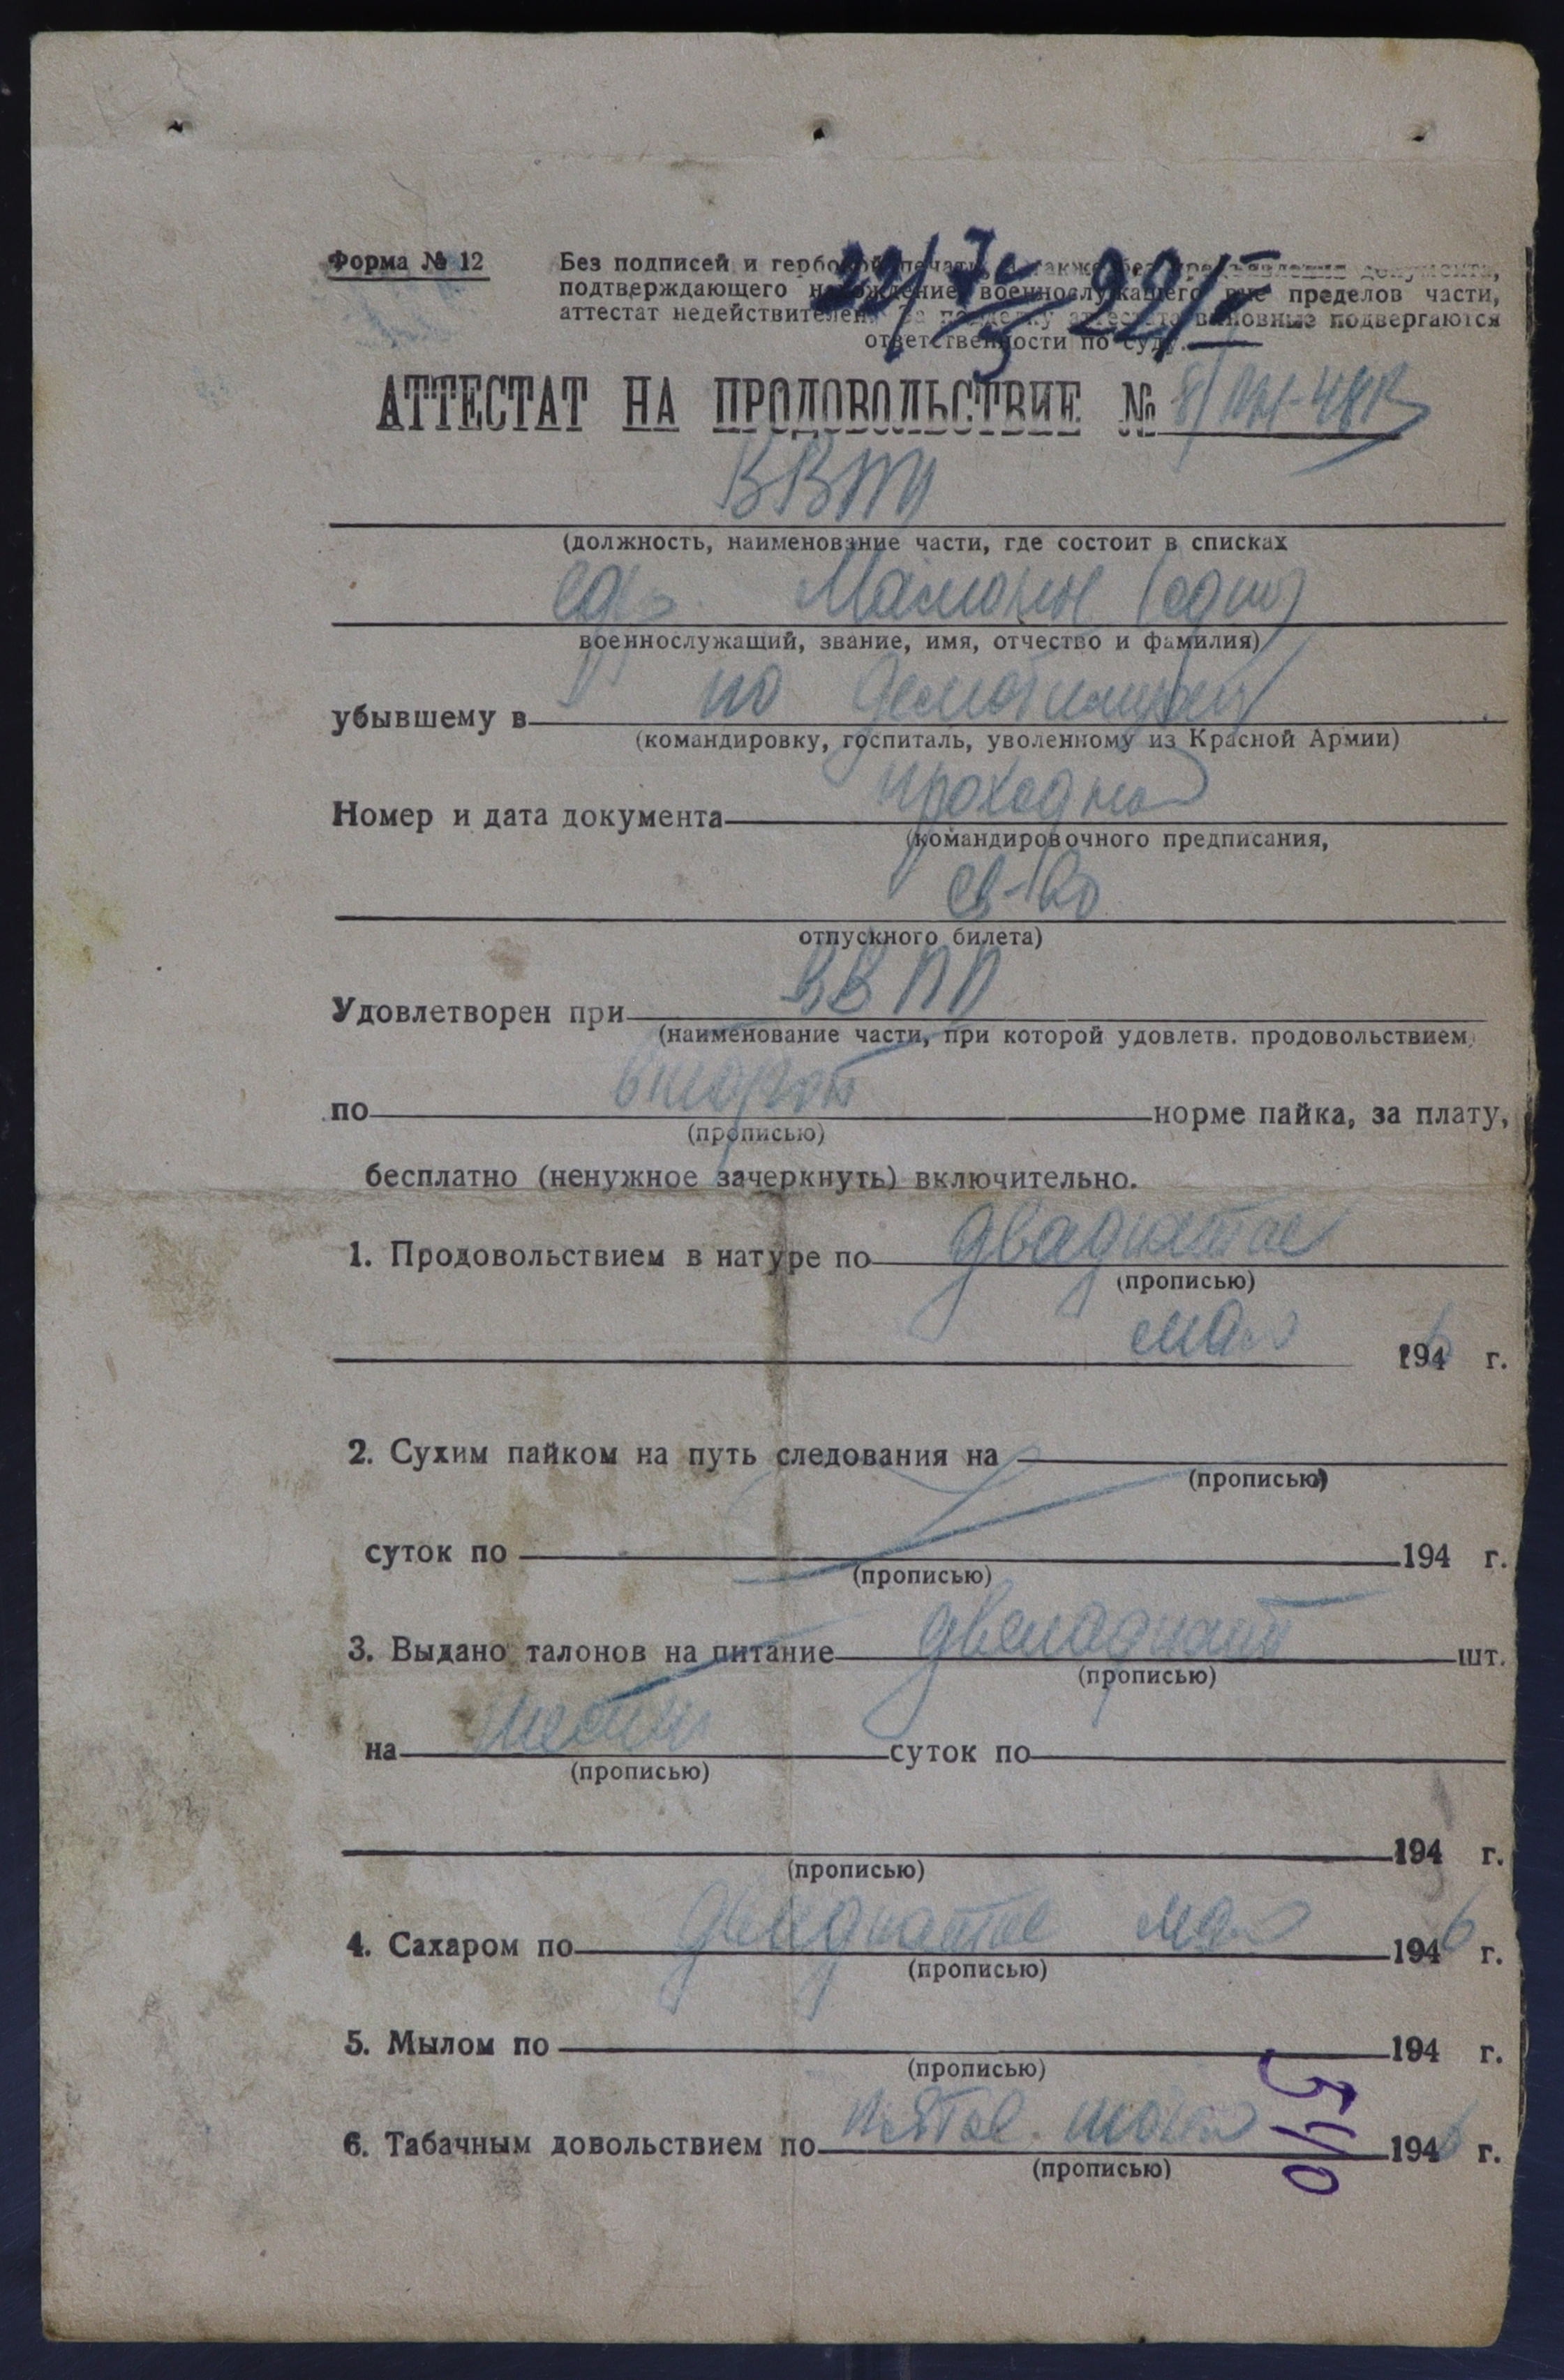 Форма № 12
Без подписей и гербовой печати, а также без предъявления документа,
подтверждающего нахождение военнослужащего вне пределов части,
аттестат недействителен. За подделку аттестата виновные подвергаются
ответственности по суду.
АТТЕСТАТ НА ПРОДОВОЛЬСТВИЕ №
(должность, наименование части, где состоит в списках
военнослужащий, звание, имя, отчество и фамилия)
убывшему в по
(командировку, госпиталь, уволенному из Красной Армии)
Номер и дата документа проходное
(командировочного предписания,
св-во
отпускного билета)
Удовлетворен при ВВПП
(наименование части, при которой удовлетв. продовольствием)
по второй норме пайка, за плату,
(прописью)
бесплатно (ненужное зачеркнуть) включительно.
1. Продовольствием в натуре по двадцатое
(прописью)
мая 1946 г.
2. Сухим пайком на путь следования на
(прописью)
суток по 194 г.
(прописью)
3. Выдано талонов на питание двенадцать шт.
(прописью)
на суток по
(прописью)
194 г.
(прописью)
4. Сахаром по двадцатое мая 1946 г.
(прописью)
5. Мылом по 194 г.
(прописью)
540
6. Табачным довольствием по пятое 1946 г.
(прописью)